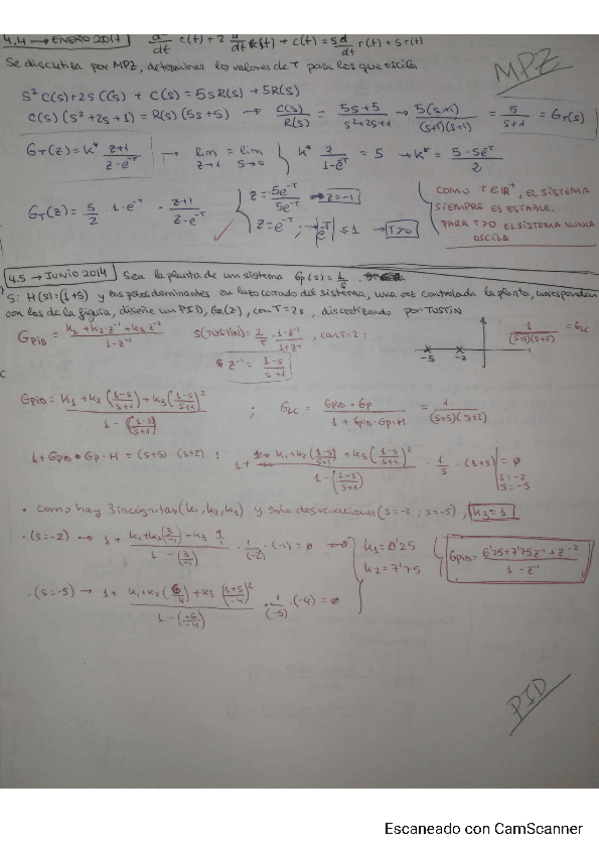 4.4 → ENERO 2017 d²/dt c(t) + 2 d/dt c(t) + c(t) = 5 d/dt r(t) + 5r(t)
Se discretiza por MPZ, determinar los valores de T para los que oscila
MPZ
S² C(s) + 2s C(s) + C(s) = 5s R(s) + 5R(s)
C(s) (s² + 2s + 1) = R(s) (5s + 5) → C(s)/R(s) = 5s+5/s²+2s+1 → 5(s+1)/(s+1)(s+1) = 5/s+1 = Gr(s)
Gr(z) = K* z+1/z-e^-T → lim z→1 = lim s→0 { K* 2/1-e^-T = 5 → K* = 5-5e^-T/2
Gr(z) = 5/2 · 1-e^-T · z+1/z-e^-T { z = -5e^-T/5e^-T → z=-1
z = e^-T ; → |e^-T| ≤ 1 → T>0
COMO T ∈ R⁺, EL SISTEMA
SIEMPRE ES ESTABLE.
PARA T>0 EL SISTEMA NUNCA
OSCILA
4.5 → JUNIO 2014 Sea la planta de un sistema Gp(s) = 1/s
Si H(s)=(1+s) y los polos dominantes en lazo cerrado del sistema, una vez controlada la planta, corresponden
con los de la figura, diseñe un PID, GR(z), con T=2s, discretizando por TUSTIN
GPID = K1+K2·z⁻¹+K3·z⁻²/1-z⁻¹ S(TUSTIN) = 2/T · 1-z⁻¹/1+z⁻¹, con T=2:
z⁻¹ = 1-s/s+1
-5 -2
1/(s+5)(s+2) = GLC
GPID = K1+K2(1-s/s+1)+K3(1-s/s+1)²/1-(1-s/s+1) ; GLC = GPID·Gp/1+GPID·Gp·H = 1/(s+5)(s+2)
1+GPID·Gp·H = (s+5)(s+2) : 1 + K1+K2(1-s/s+1)+K3(1-s/s+1)²/1-(1-s/s+1) · 1/s · (1+s) | = 0 s=-2 s=-5
· como hay 3 incógnitas (K1,K2,K3) y solo dos ecuaciones (s=-2 ; s=-5), K3=1
· (s=-2) → 1+ K1+K2(3/-1)+K3 9/1/1-(3/-1) · 1/(-2) · (-1) = 0 { K1=0'25
K2=7'75
GPID = 6'25+7'75z⁻¹+z⁻²/1-z⁻¹
· (s=-5) → 1+ K1+K2(6/-4)+K3(1+5/-4)²/1-(+6/-4) · 1/(-5) · (-4) = 0
PID
Escaneado con CamScanner